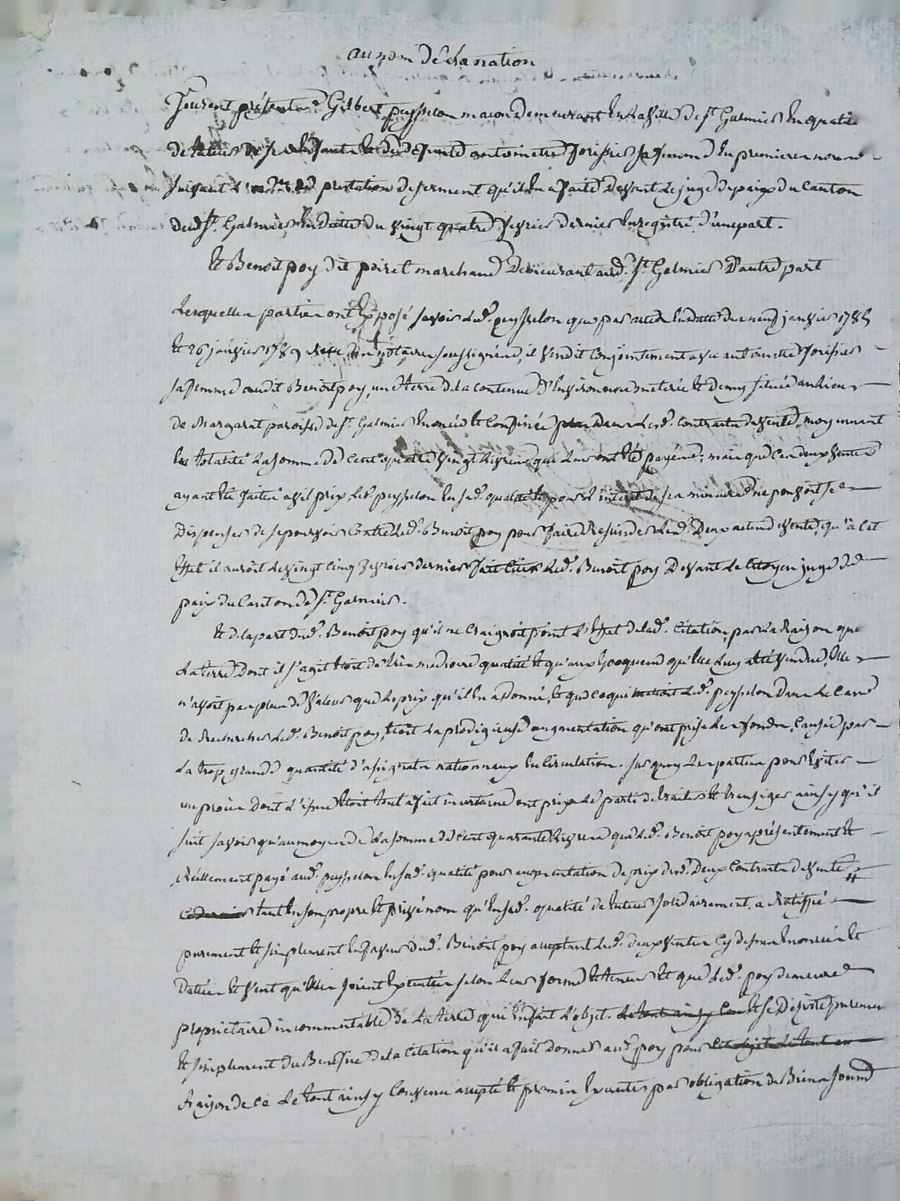 au nom de la nation
furent présents Gilbert peysselon macon demeurant en la ville de St Galmier en qualité
de tuteur de ses enfants et de défunte antoinette forissier sa femme en premiere nopce
suivant l'acte de prestation de serment qu'il en a faite devant le juge de paix du Canton
dud. St Galmier en datte du vingt quatre fevrier dernier enregistré d'une part.
Et Benoit poy dit poiret marchand demeurant aud. St Galmier d'autre part
Lesquelles parties ont exposé savoir led. peysselon que par actes en datte du neuf janvier 178
et 26 janvier 1789 notaire soussigné il vendit conjointement avec antoinette forissier
sa femme audit Benoit poy, une terre de la contenue d'environ une meterée et demy située au lieu
de Margarat paroisse de St Galmier enoncée et confinée dans lesd. contrats de vente, moyennant
en totalité la somme de cent quatre vingt livres qui leur ont été payées; mais que ces deux ventes
ayant été faites a vil prix led. peysselon en sad. qualité et pour l'interet de ses mineurs ne pouvoit se
dispenser de se pourvoir contre led. Benoit poy pour faire rescinder lesd. deux actes de vente, qu'a cet
effet il auroit le vingt cinq fevrier dernier fait citer led. Benoit poy devant le citoyen juge de
paix du Canton de St Galmier.
Et de la part dud. Benoit poy qu'il ne craignoit point l'effet de lad. citation, par la raison que
la terre dont il s'agit étoit de tres mediocre qualité et qu'aux epoques qu'elle luy a été vendue, elle
n'avoit pas plus de valeur que le prix qu'il en a donné, et que ce qui mettoit led. peysselon dans le cas
de rechercher led. Benoit poy, étoit la prodigieuse augmentation qu'ont prise les fonds, causée par
la trop grande quantité d'assignats nationaux en circulation. sur quoy les parties pour eviter
un procès dont l'issue étoit tout a fait incertaine ont pris le parti de traiter et transiger ainsy qu'il
suit savoir qu'au moyen de la somme de cent quarante livres que led. Benoit poy a présentement et
réellement payé aud. peysselon en sad. qualité pour augmentation de prix desd. deux contrats de vente #
ce dernier tant en son propre et privé nom qu'en sad. qualité de tuteur solidairement, a ratiffié
purement et simplement en faveur dud. Benoit poy acceptant lesd. deux ventes cy dessus enoncées et
dattées et veut qu'elles soient executées selon leur forme et teneur et que led. poy demeure
propriétaire incommutable de la terre qui en fait l'objet. le tout ainsy con et se désiste purement
et simplement du Benefice de la citation qu'il a fait donner aud. poy pour cet objet le tout en
raison de ce le tout ainsy convenu accepté et promis executer par obligation de Biens soumis